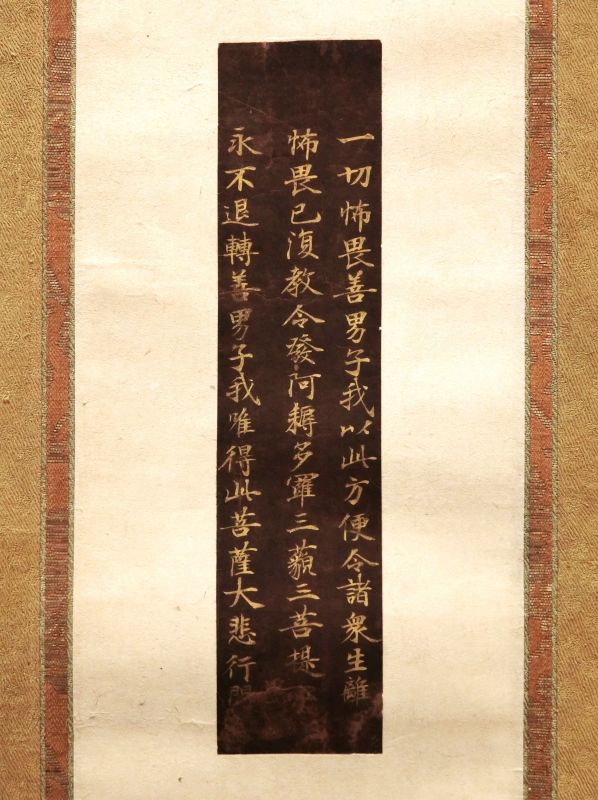 一切怖畏善男子我以此方便令諸衆生離
怖畏已復教令發阿耨多羅三藐三菩提
永不退轉善男子我唯得此菩薩大悲行門